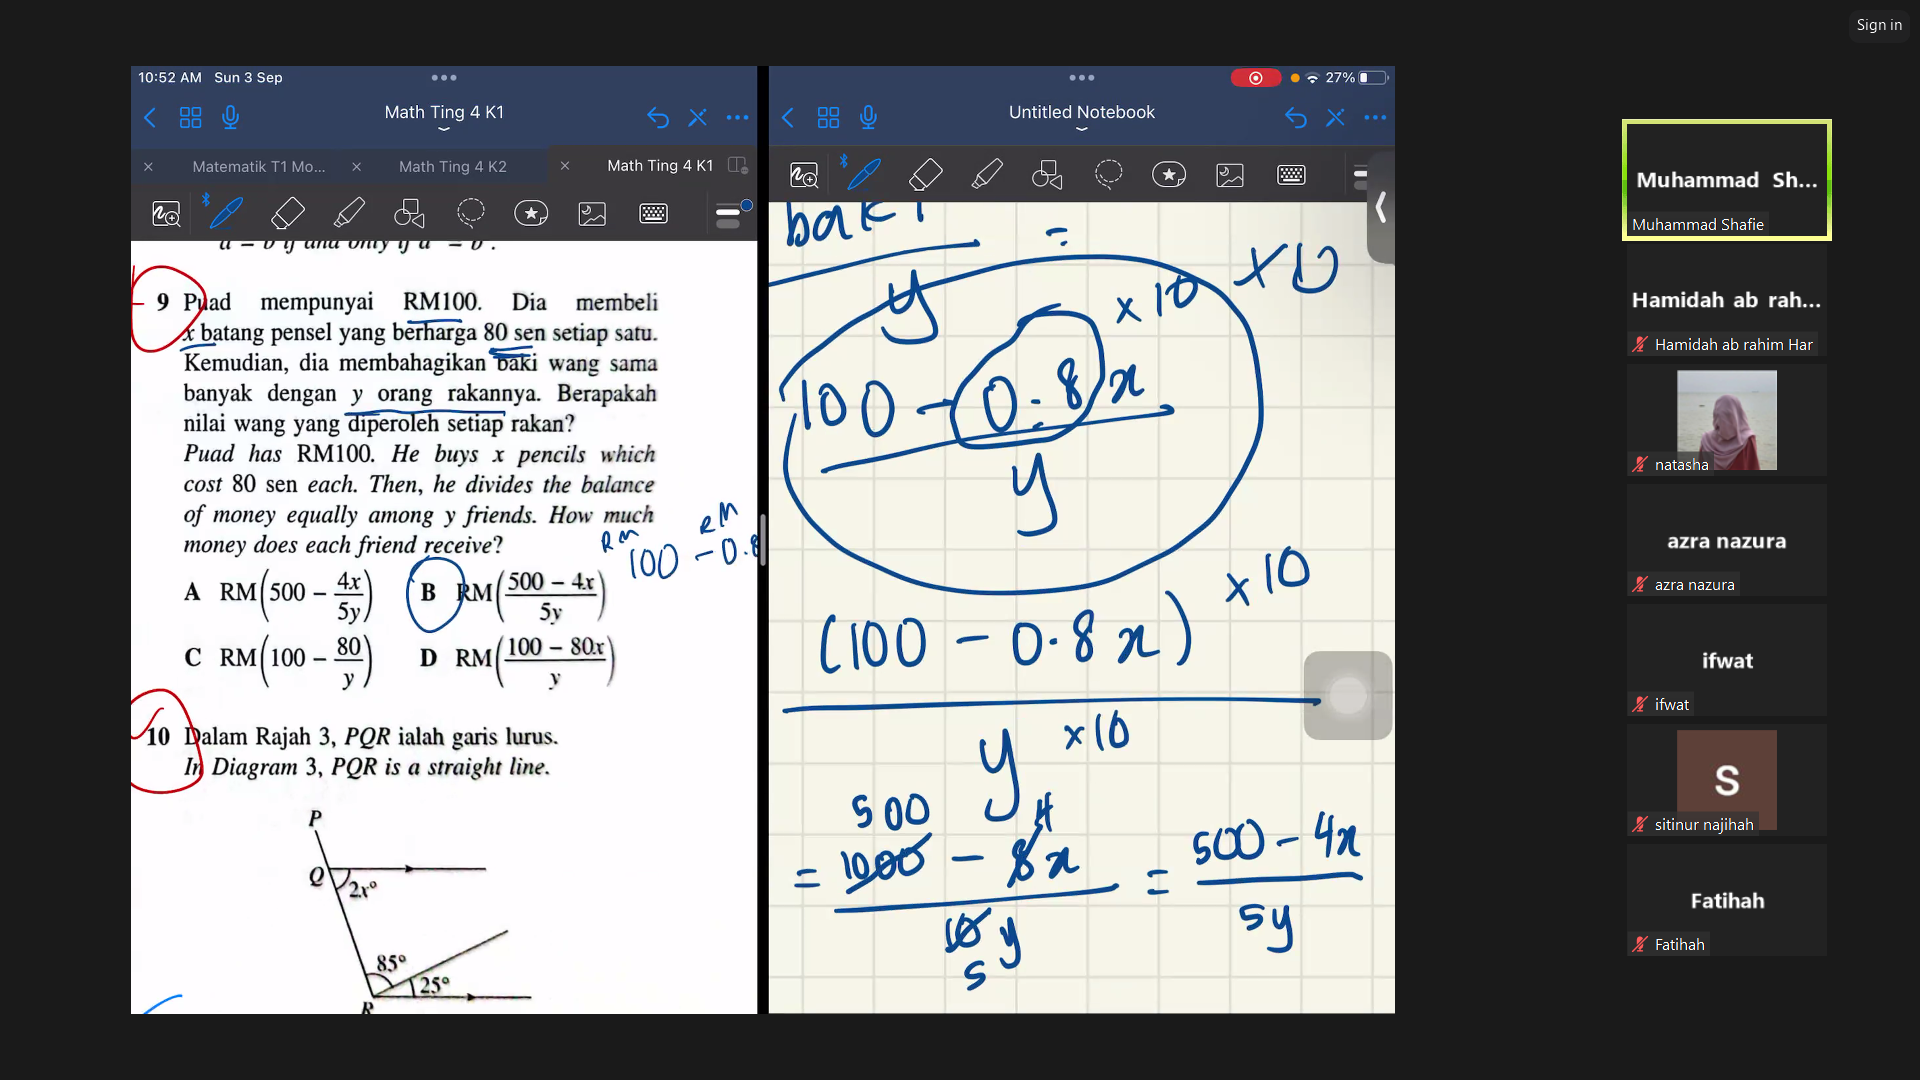 Sign in
10:52 AM Sun 3 Sep
Math Ting 4 K1
Matematik T1 Mo...
Math Ting 4 K2
Math Ting 4 K1
a = b if and only if a = b .
9 Puad mempunyai RM100. Dia membeli
x batang pensel yang berharga 80 sen setiap satu.
Kemudian, dia membahagikan baki wang sama
banyak dengan y orang rakannya. Berapakah
nilai wang yang diperoleh setiap rakan?
Puad has RM100. He buys x pencils which
cost 80 sen each. Then, he divides the balance
of money equally among y friends. How much
money does each friend receive?
RM RM
100 - 0.8
A RM(500 - 4x/5y) B RM((500 - 4x)/5y)
C RM(100 - 80/y) D RM((100 - 80x)/y)
10 Dalam Rajah 3, PQR ialah garis lurus.
In Diagram 3, PQR is a straight line.
P
Q 2x°
85°
25°
R
27%
Untitled Notebook
baki =
y
× 10 × 10
100 - 0.8x
y
(100 - 0.8x) × 10
y × 10
500 4
= 1000 - 8x = 500 - 4x
10y 5y
5
Muhammad Sh...
Muhammad Shafie
Hamidah ab rah...
Hamidah ab rahim Har
natasha
azra nazura
azra nazura
ifwat
ifwat
S
sitinur najihah
Fatihah
Fatihah